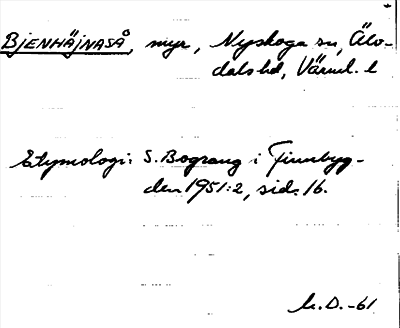 BJENHÄJNASÅ, myr, Nyskoga sn, Älv-
dals hd, Värml. l
Etymologi: S. Bograng i Finnbyg-
den 1951:2, sid. 16.
L. D. -61